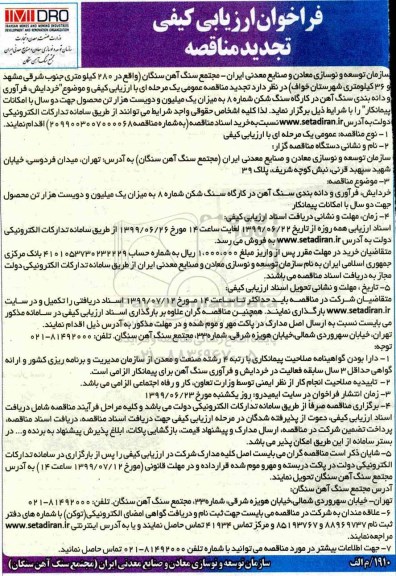 IMIDRO
IRANIAN MINES AND MINING INDUSTRIES
DEVELOPMENT AND RENOVATION ORGANIZATION
وزارت صنعت، معدن و تجارت
سازمان توسعه و نوسازی معادن و صنایع معدنی ایران
مجتمع سنگ آهن سنگان
فراخوان ارزیابی کیفی
تجدید مناقصه
سازمان توسعه و نوسازی معادن و صنایع معدنی ایران - مجتمع سنگ آهن سنگان (واقع در ۲۸۰ کیلومتری جنوب شرقی مشهد
و ۳۶ کیلومتری شهرستان خواف) در نظر دارد تجدید مناقصه عمومی یک مرحله ای با ارزیابی کیفی و موضوع "خردایش، فرآوری
و دانه بندی سنگ آهن در کارگاه سنگ شکن شماره ۸ به میزان یک میلیون و دویست هزار تن محصول جهت دو سال با امکانات
پیمانکار" را با شرایط ذیل برگزار نماید. لذا کلیه اشخاص حقوقی واجد شرایط می توانند از طریق سامانه تدارکات الکترونیکی
دولت به آدرس www.setadiran.ir نسبت به خرید اسناد مناقصه (به شماره مناقصه ۲۰۹۹۰۰۲۰۰۷۰۰۰۰۶۸) اقدام نمایند.
۱- نوع مناقصه: عمومی یک مرحله ای با ارزیابی کیفی
۲- نام و نشانی دستگاه مناقصه گزار:
سازمان توسعه و نوسازی معادن و صنایع معدنی ایران (مجتمع سنگ آهن سنگان) به آدرس: تهران، میدان فردوسی، خیابان
شهید سپهبد قرنی، نبش کوچه شریف، پلاک ۳۹
۳- موضوع مناقصه:
خردایش، فرآوری و دانه بندی سنگ آهن در کارگاه سنگ شکن شماره ۸ به میزان یک میلیون و دویست هزار تن محصول
جهت دو سال با امکانات پیمانکار
۴- زمان، مهلت و نشانی دریافت اسناد ارزیابی کیفی:
اسناد ارزیابی همه روزه از تاریخ ۱۳۹۹/۰۶/۲۲ لغایت ساعت ۱۴ مورخ ۱۳۹۹/۰۶/۲۶ از طریق سامانه تدارکات الکترونیکی
دولت به آدرس www.setadiran.ir به فروش می رسد.
متقاضیان خرید در مهلت مقرر پس از واریز مبلغ ۱.۰۰۰.۰۰۰ ریال به شماره حساب ۴۱۰۱۰۵۳۷۳۰۲۳۲۲۲۹ بانک مرکزی
جمهوری اسلامی ایران به نام سازمان توسعه و نوسازی معادن و صنایع معدنی ایران از طریق سامانه تدارکات الکترونیکی دولت
مجاز به دریافت اسناد مناقصه می باشند.
۵- تاریخ، مهلت و نشانی تحویل اسناد ارزیابی کیفی:
متقاضیان شرکت در مناقصه باید حداکثر تا ساعت ۱۴ مورخ ۱۳۹۹/۰۷/۱۲ اسناد دریافتی را تکمیل و در سایت
www.setadiran.ir بارگذاری نمایند. همچنین مناقصه گران علاوه بر بارگذاری اسناد ارزیابی کیفی در سامانه مذکور
می بایست نسبت به ارسال اصل مدارک در پاکت مهر و موم شده و در مهلت مذکور به آدرس ذیل اقدام نمایند.
تهران، خیابان سهروردی شمالی، خیابان هویزه شرقی، شماره ۳۳، مجتمع سنگ آهن سنگان. تلفن: ۸۱۴۹۲۰۰۰-۰۲۱
توجه:
۱- دارا بودن گواهینامه صلاحیت پیمانکاری با رتبه ۴ رشته صنعت و معدن از سازمان مدیریت و برنامه ریزی کشور و ارائه
گواهی حداقل ۳ سال سابقه فعالیت در خردایش و فرآوری سنگ آهن برای پیمانکار الزامی است.
۲- تاییدیه صلاحیت انجام کار از نظر ایمنی توسط وزارت تعاون، کار و رفاه اجتماعی الزامی می باشد.
۳- زمان انتشار فراخوان در سایت ایمیدرو: روز یکشنبه مورخ ۱۳۹۹/۰۶/۲۳
۴- برگزاری مناقصه صرفاً از طریق سامانه تدارکات الکترونیکی دولت می باشد و کلیه مراحل فرآیند مناقصه شامل دریافت
اسناد ارزیابی کیفی، دعوت از پذیرفته شدگان در مرحله ارزیابی کیفی جهت دریافت اسناد مناقصه، دریافت اسناد مناقصه،
پرداخت تضمین شرکت در مناقصه، ارسال مدارک و پیشنهاد قیمت، بازگشایی پاکات، ابلاغ پذیرش پیشنهاد به برنده و... در
بستر سامانه از این طریق امکان پذیر می باشد.
۵- شایان ذکر است مناقصه گران می بایست اصل کلیه مدارک شرکت در ارزیابی کیفی را پس از بارگزاری در سامانه تدارکات
الکترونیکی دولت در پاکت دربسته و مهر و موم شده قرارداده و در مهلت قانونی (مورخ ۱۳۹۹/۰۷/۱۲ ساعت ۱۴) به آدرس
مجتمع سنگ آهن سنگان تحویل نمایند.
آدرس مجتمع سنگ آهن سنگان:
تهران- خیابان سهروردی شمالی خیابان هویزه شرقی، شماره ۳۳، مجتمع سنگ آهن سنگان. تلفن: ۸۱۴۹۲۰۰۰-۰۲۱
۶- علاقه مندان به شرکت در مناقصه می بایست جهت ثبت نام و دریافت گواهی امضای الکترونیکی (توکن) با شماره های دفتر
ثبت نام ۸۸۹۶۹۷۳۷ و ۸۵۱۹۳۷۶۷ و مرکز تماس ۴۱۹۳۴ تماس حاصل نمایند و یا به آدرس اینترنتی www.setadiran.ir
مراجعه نمایند.
۷- جهت اطلاعات بیشتر در مورد مناقصه می توانید با شماره تلفن ۸۱۴۹۲۰۰۰-۰۲۱ تماس حاصل نمایید.
۱۹۱۰/م الف
سازمان توسعه و نوسازی معادن و صنایع معدنی ایران (مجتمع سنگ آهن سنگان)